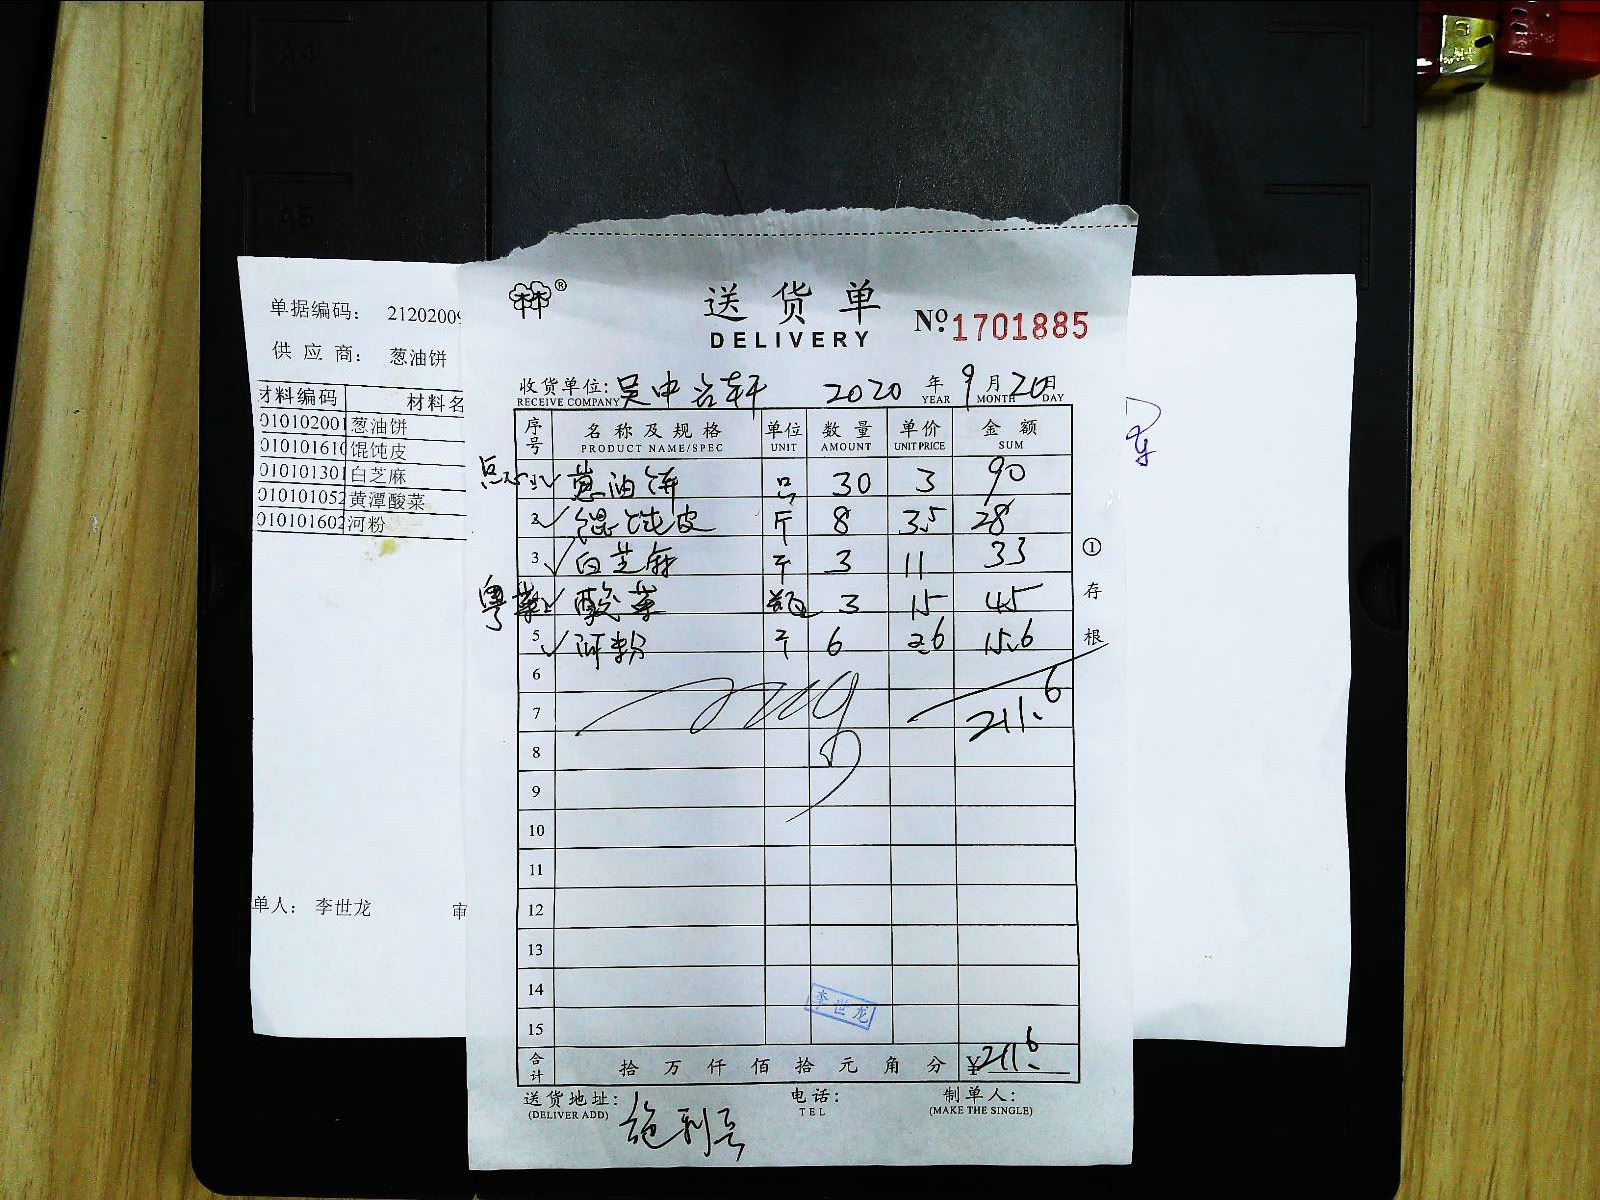 单据编码： 21202009
供 应 商： 葱油饼
材料编码 材料名
010102001 葱油饼
010101610 馄饨皮
010101301 白芝麻
010101052 黄潭酸菜
010101602 河粉
单人： 李世龙 审
送 货 单
DELIVERY
№ 1701885
收货单位: 吴中 轩 2020 年 9 月 20 日
RECEIVE COMPANY YEAR MONTH DAY
序号 名 称 及 规 格 单位 数 量 单价 金 额
PRODUCT NAME/SPEC UNIT AMOUNT UNIT PRICE SUM
点心 1 葱油饼 30 3 90
2 馄饨皮 斤 8 3.5 28
3 白芝麻 斤 3 11 33
粤菜 酸菜 3 15 45
5 河粉 斤 6 2.6 15.6
6
7 211.6
8
9
10
11
12
13
14
李世龙
15
合计 拾 万 仟 佰 拾 元 角 分 ¥211.6
送货地址: 电话: 制单人:
(DELIVER ADD) TEL (MAKE THE SINGLE)
① 存根